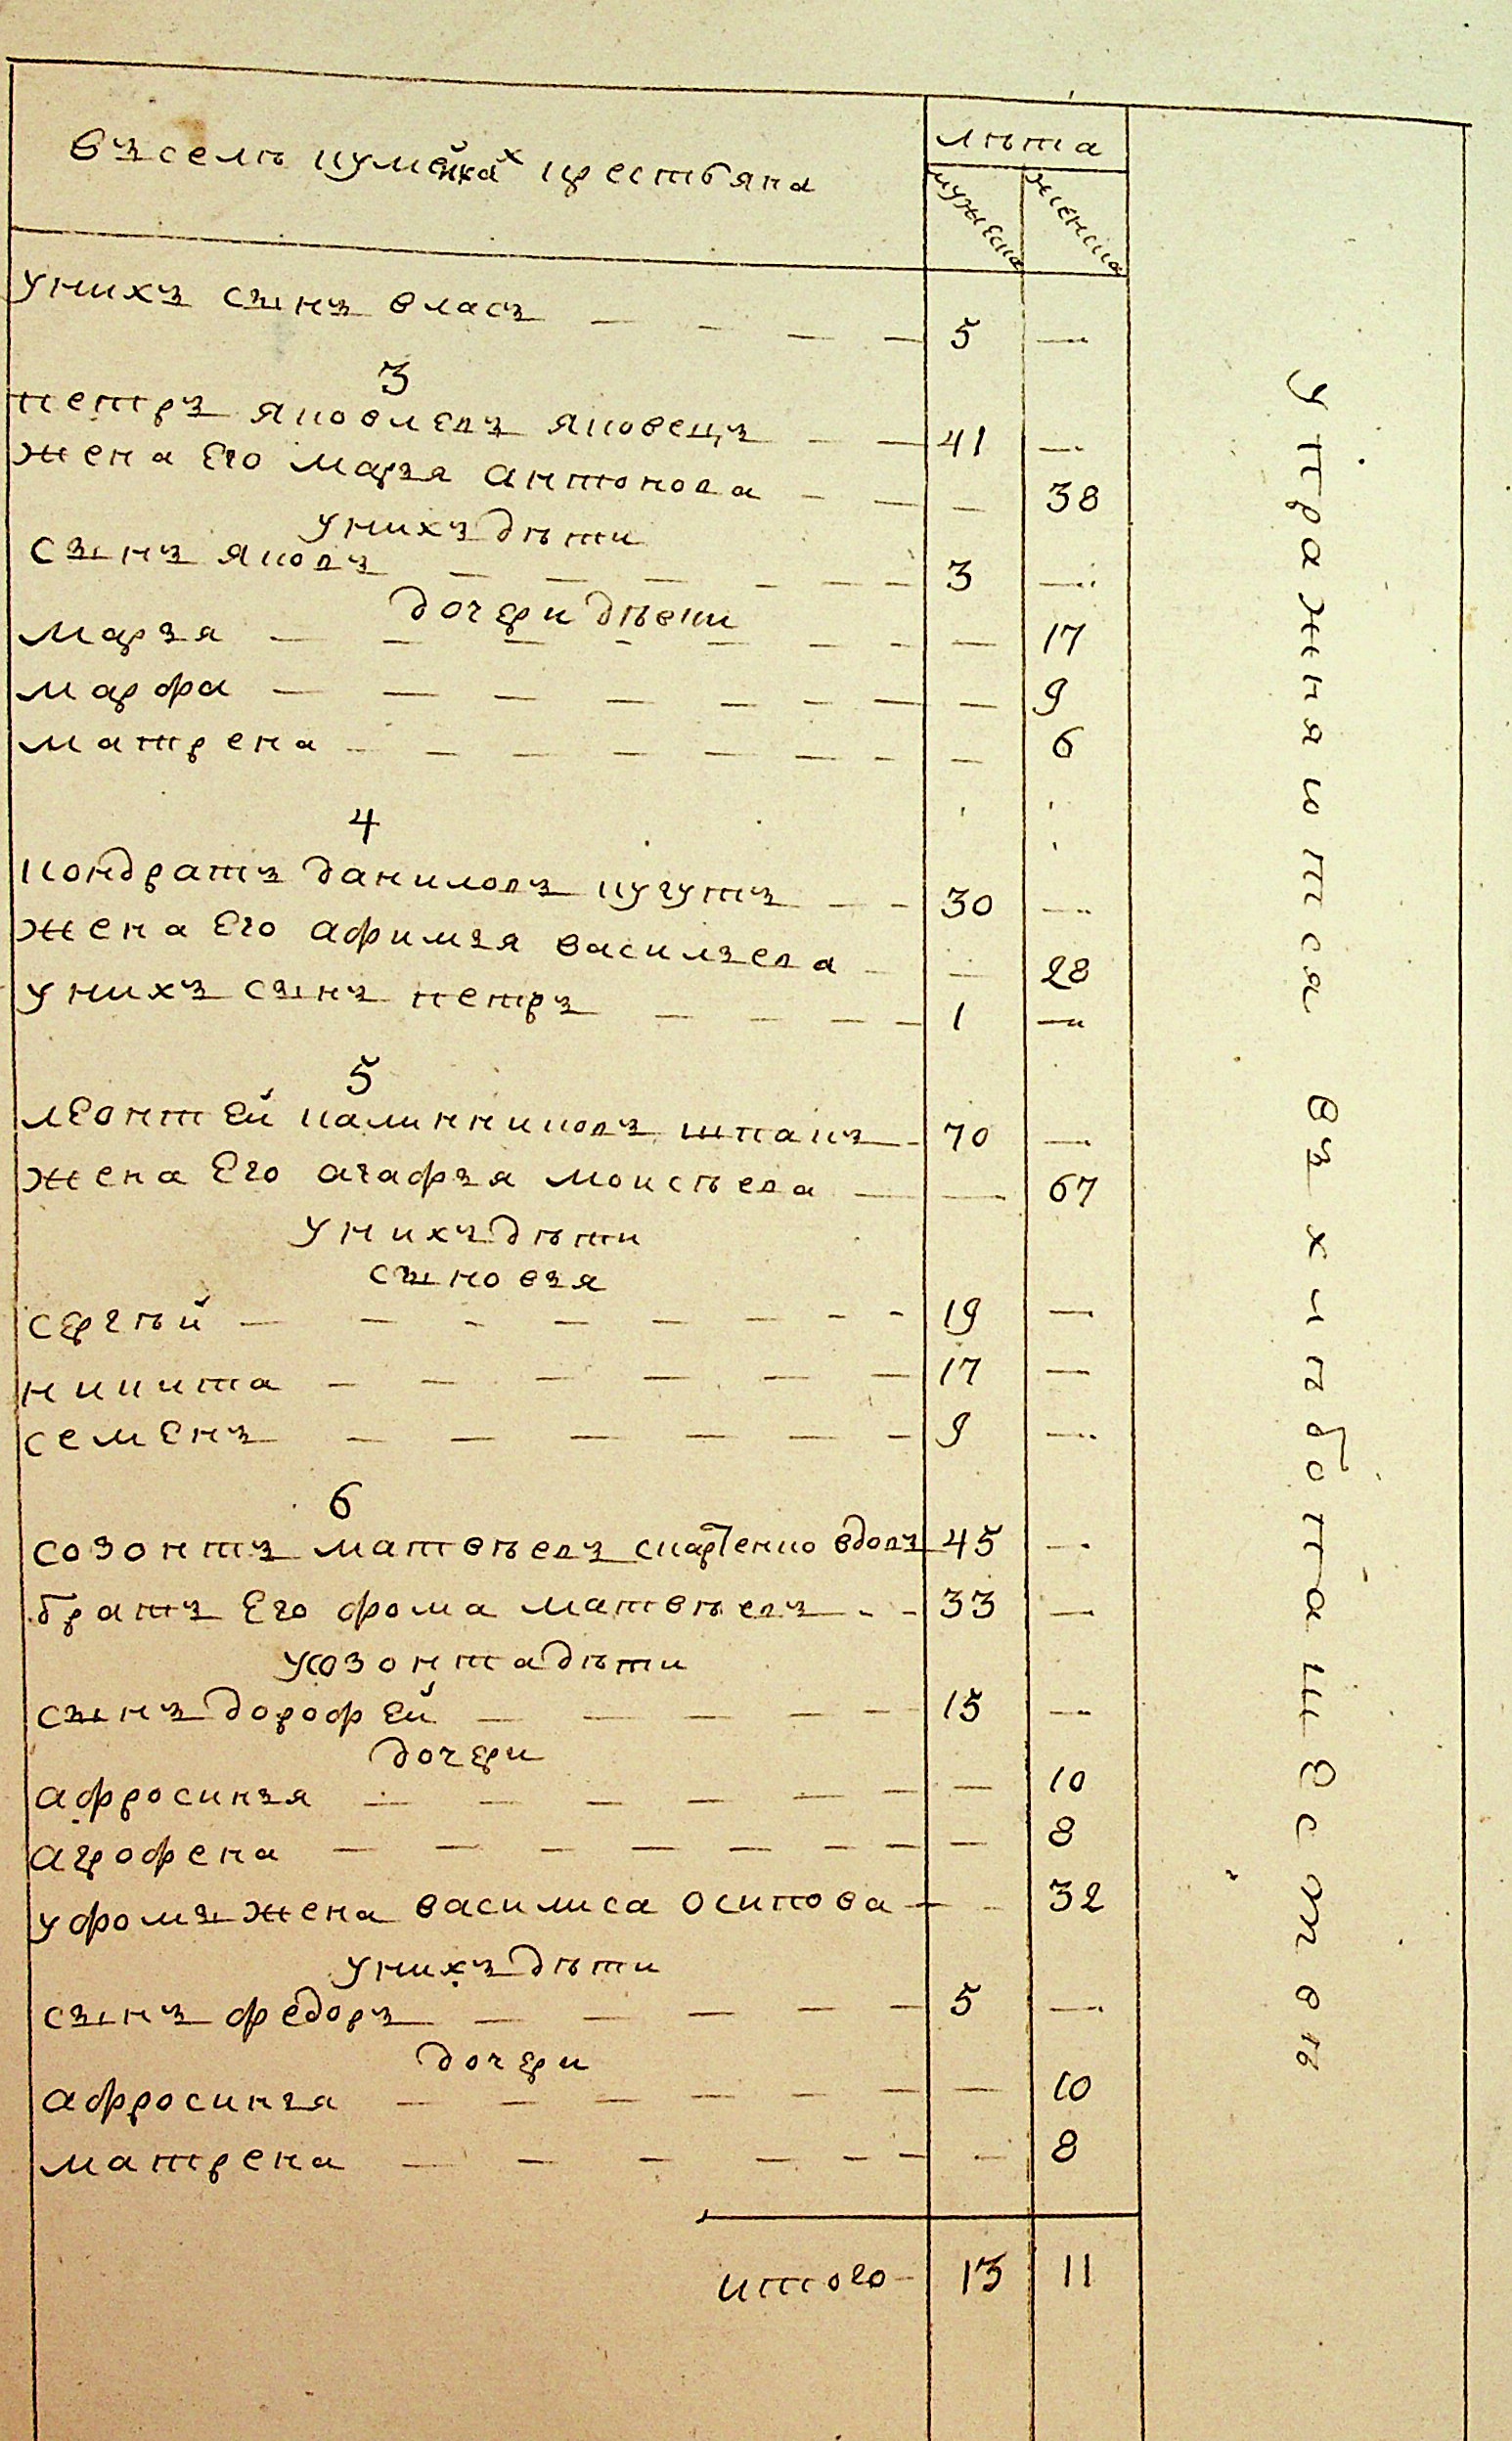 въ селѣ кумейках крестьяна
лѣта
мужеска
женска
у нихъ сынъ власъ — — — — 5 —
3
петръ яковлевъ яковецъ — — 41 —
жена Его марья антонова — — — 38
у нихъ дѣти
сынъ яковъ — — — — — — 3 —
дочери дѣвки
марья — — — — — — — — 17
марфа — — — — — — — — 9
матрена — — — — — — — 6
4
кондратъ даниловъ кугутъ — — 30 —
жена Его афимья васильева — — 28
у нихъ сынъ петръ — — — — 1 —
5
леонтЕй калинниковъ шпакъ — 70 —
жена Его агафья моисѣева — — 67
у нихъ дѣти
сыновья
сергѣй — — — — — — — — 19 —
никита — — — — — — 17 —
семЕнъ — — — — — — 9 —
6
созонтъ матвѣевъ скарТенко вдовъ 45 —
братъ Его фома матвѣевъ — — 33 —
у созонта дѣти
сынъ дорофЕй — — — — — 15 —
дочери
афросинья — — — — — — — 10
агрофена — — — — — — — — 8
у фомы жена василиса осипова — — 32
у нихъ дѣти
сынъ федоръ — — — — — 5 —
дочери
афросинья — — — — — — — 10
матрена — — — — — — — 8
итого — 13 11
упражняютса въ хлѣботашЗствѣ